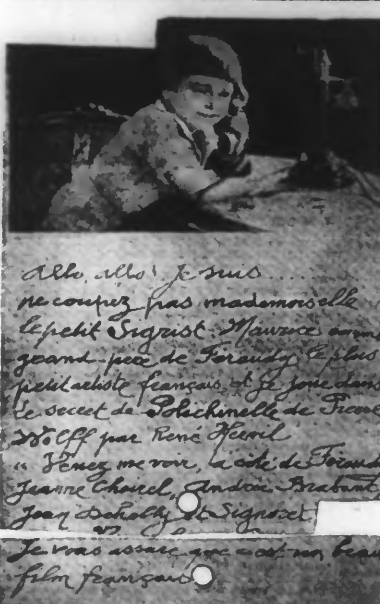 Allo, allo! Je suis
ne coupez pas mademoiselle
le petit Sigrist Maurice
grand-père de Feraudy, le plus
petit artiste français, et je joue dans
le secret de Polichinelle de Pierre
Wolff par René Hervil
« Venez me voir, à côté de
Jeanne Cheirel, Andrée Brabant
Jean et Signoret,
Je vous assure que c'est un beau
film français